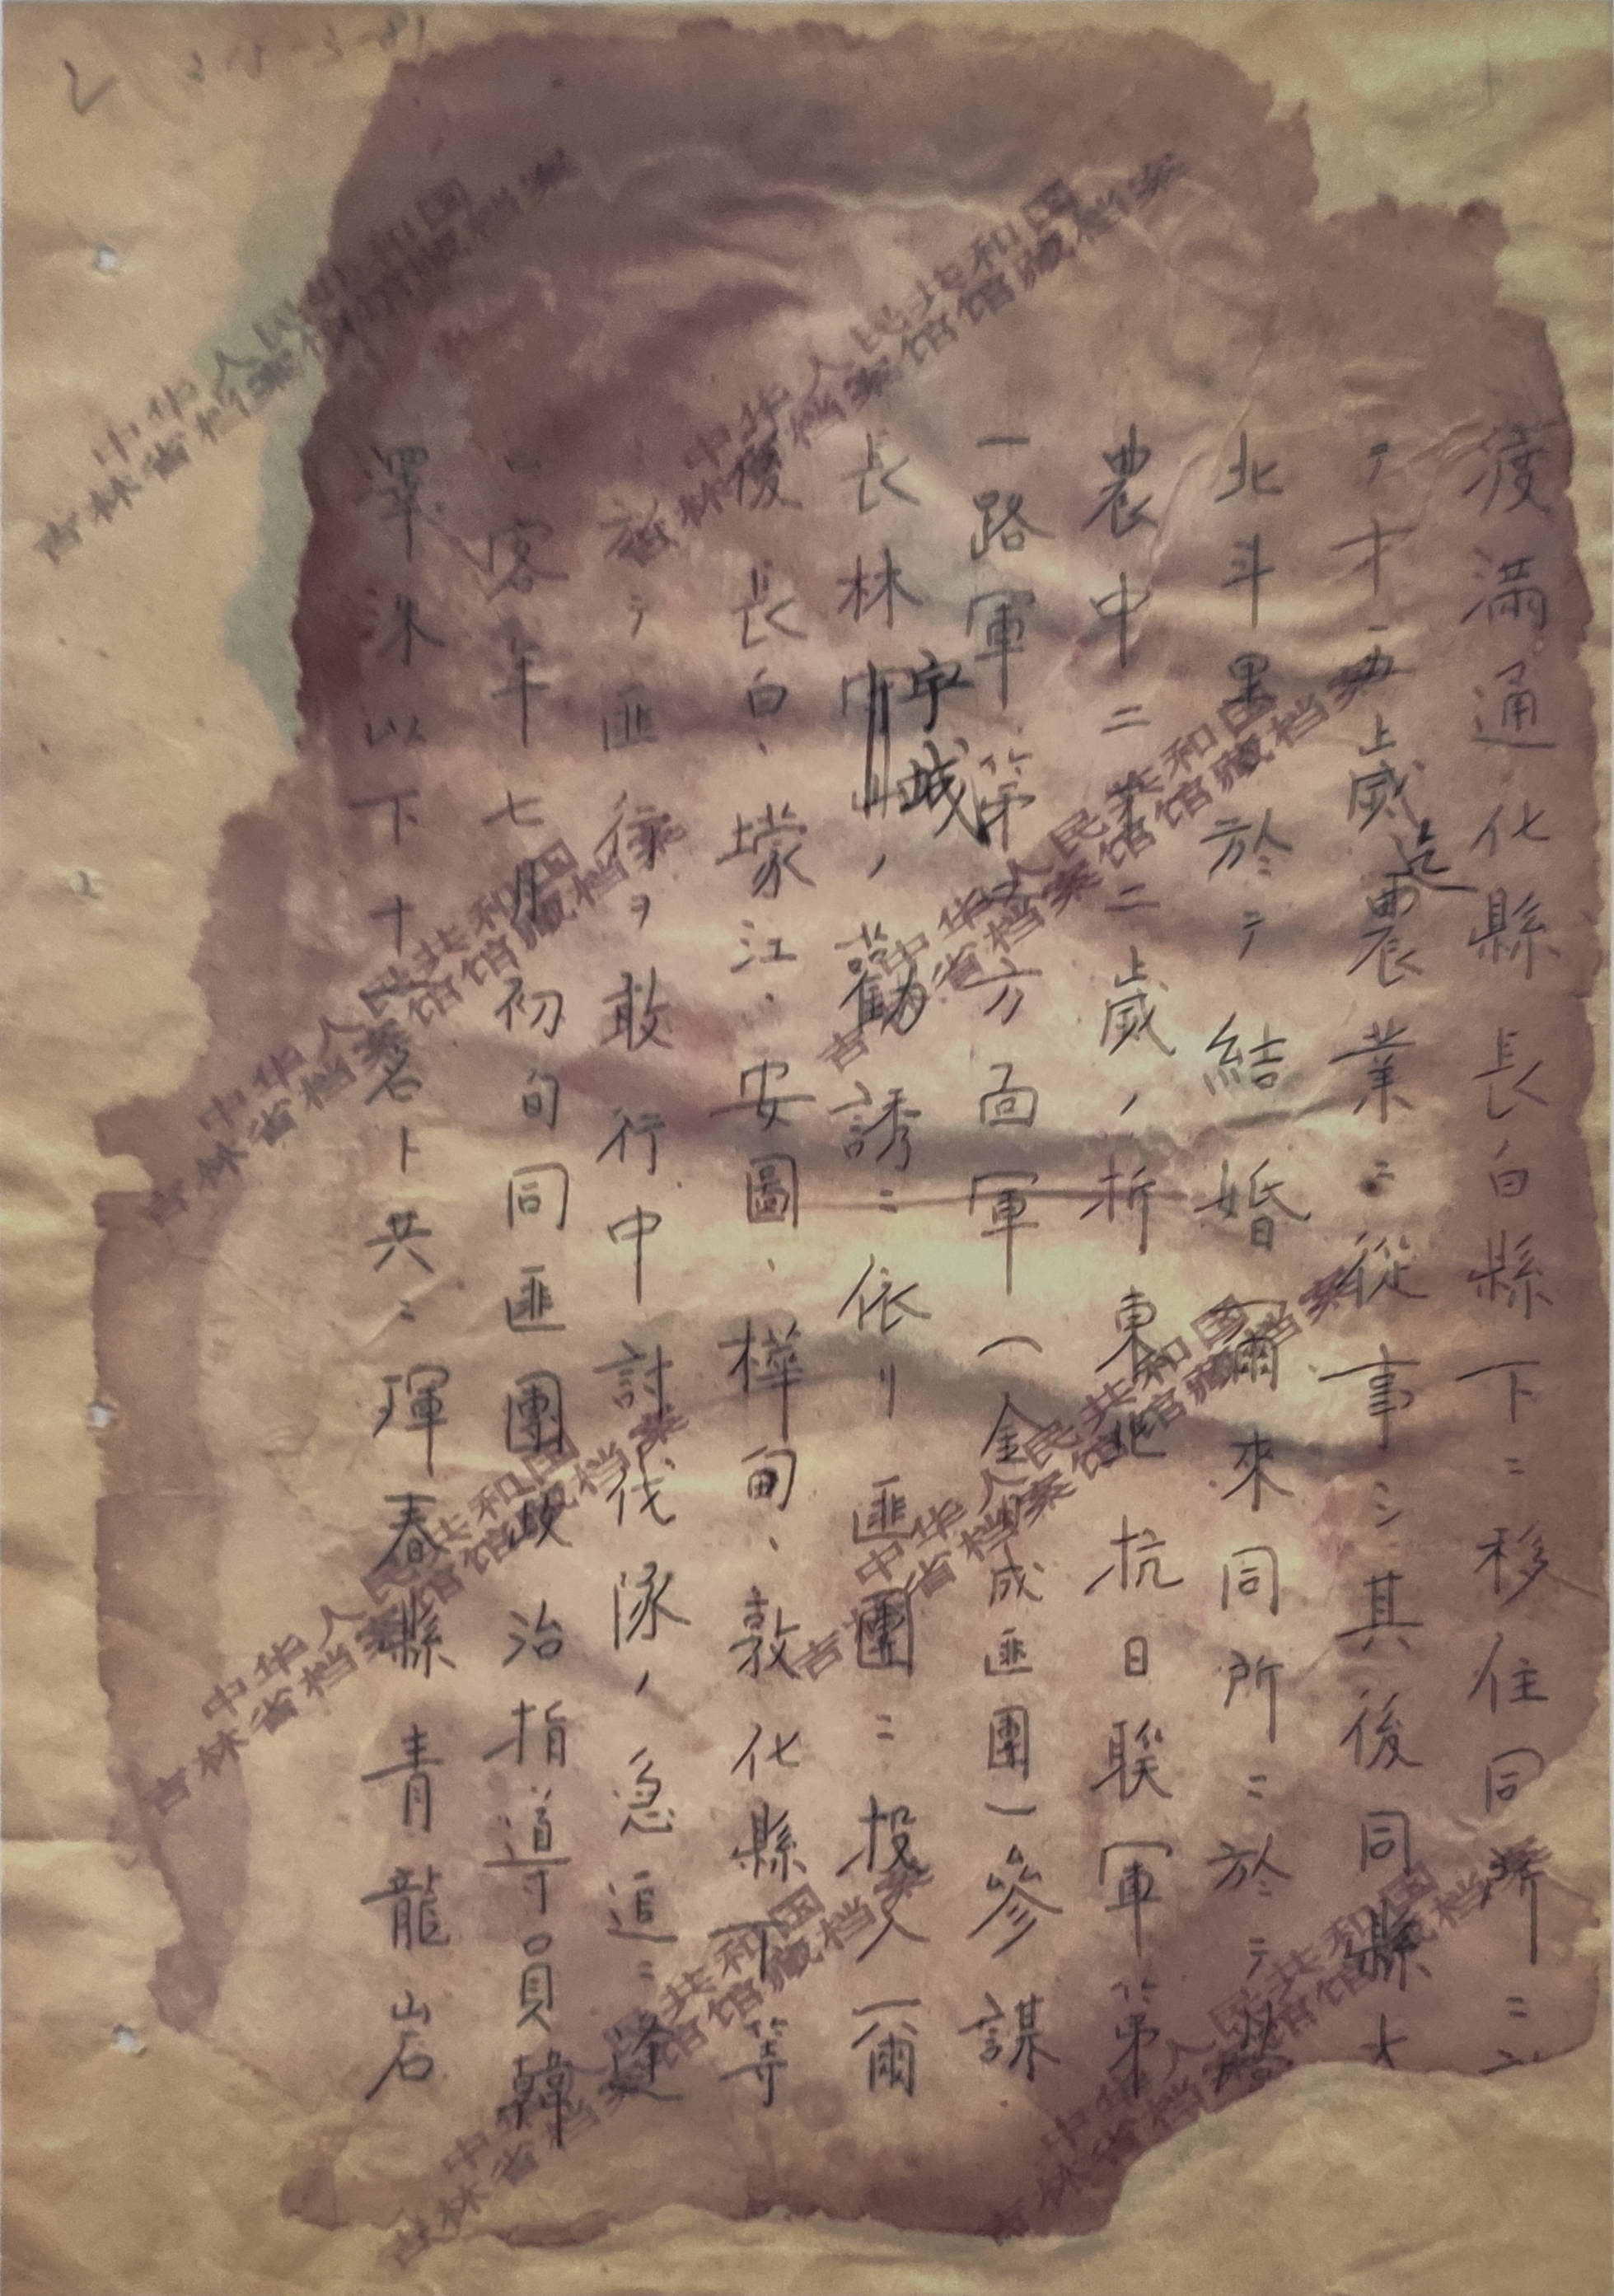 渡滿通化縣長白縣下ニ移住同所ニ
テ才五歳迄農業ニ從事シ其後同縣大
北斗里於テ結婚爾來同所ニ於テ
農中二十二歳ノ折東北抗日聯軍第
一路軍第二方面軍(金日成匪團)參謀
長林宇城ノ勸誘ニ依リ匪團ニ投入爾
後長白、濛江、安圖、樺甸、敦化縣下等
於テ匪行ヲ敢行中討伐隊ノ急追ニ逢
客年七月初旬同匪團政治指導員韓
澤洙以下十名ト共ニ琿春縣青龍岩
中华人民共和国
吉林省档案馆馆藏档案
中华人民共和国
吉林省档案馆馆藏档案
中华人民共和国
吉林省档案馆馆藏档案
中华人民共和国
吉林省档案馆馆藏档案
中华人民共和国
吉林省档案馆馆藏档案
中华人民共和国
吉林省档案馆馆藏档案
中华人民共和国
吉林省档案馆馆藏档案
中华人民共和国
吉林省档案馆馆藏档案